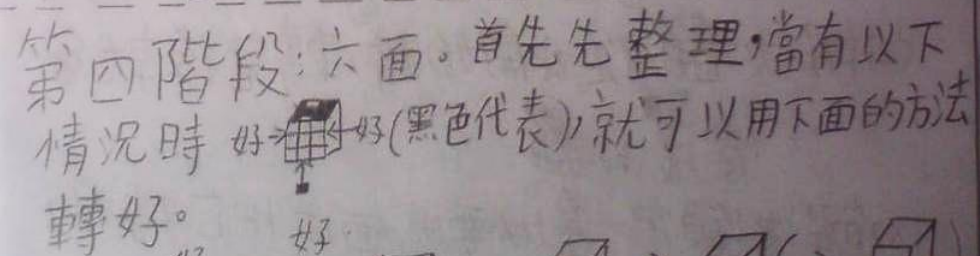 第四階段:六面。首先先整理,當有以下
情況時 好→←好(黑色代表),就可以用下面的方法
轉好。 好